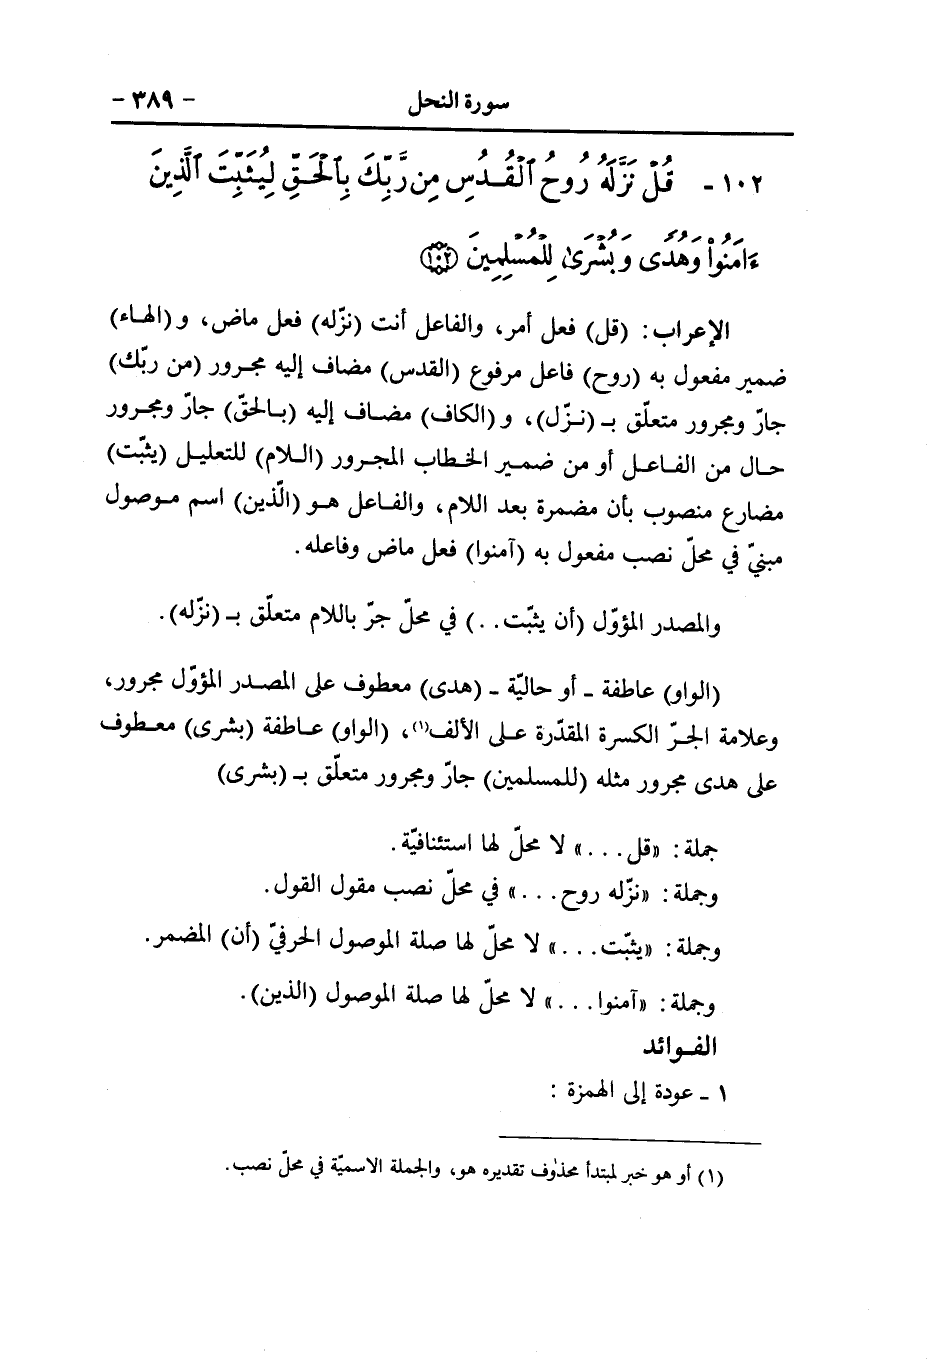 سورة النحل - ٣٨٩ -
١٠٢ - قُلْ نَزَّلَهُ رُوحُ ٱلْقُدُسِ مِن رَّبِّكَ بِٱلْحَقِّ لِيُثَبِّتَ ٱلَّذِينَ
ءَامَنُوا۟ وَهُدًى وَبُشْرَىٰ لِلْمُسْلِمِينَ ١٠٢
الإعراب: (قل) فعل أمر، والفاعل أنت (نزّله) فعل ماض، و(الهاء)
ضمير مفعول به (روح) فاعل مرفوع (القدس) مضاف إليه مجرور (من ربّك)
جارّ ومجرور متعلّق بـ (نزّل)، و(الكاف) مضاف إليه (بالحقّ) جارّ ومجرور
حال من الفاعل أو من ضمير الخطاب المجرور (اللام) للتعليل (يثبّت)
مضارع منصوب بأن مضمرة بعد اللام، والفاعل هو (الّذين) اسم موصول
مبنيّ في محلّ نصب مفعول به (آمنوا) فعل ماض وفاعله.
والمصدر المؤوّل (أن يثبّت..) في محلّ جرّ باللام متعلّق بـ (نزّله).
(الواو) عاطفة - أو حاليّة - (هدى) معطوف على المصدر المؤوّل مجرور،
وعلامة الجرّ الكسرة المقدّرة على الألف(١)، (الواو) عاطفة (بشرى) معطوف
على هدى مجرور مثله (للمسلمين) جارّ ومجرور متعلّق بـ (بشرى)
جملة: «قل...» لا محلّ لها استئنافيّة.
وجملة: «نزّله روح...» في محلّ نصب مقول القول.
وجملة: «يثبّت...» لا محلّ لها صلة الموصول الحرفيّ (أن) المضمر.
وجملة: «آمنوا...» لا محلّ لها صلة الموصول (الذين).
الفوائد
١ - عودة إلى الهمزة :
(١) أو هو خبر لمبتدأ محذوف تقديره هو، والجملة الاسميّة في محلّ نصب.